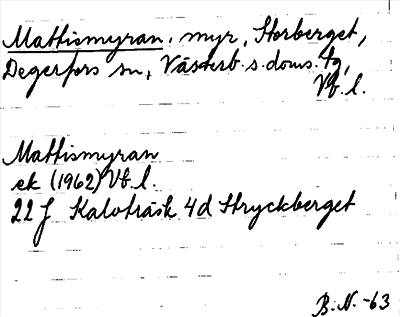 Mattismyran, myr, Storberget,
Degerfors sn, Västerb. s. doms. 4g,
Vb. l.
Mattismyran
ek (1962) Vb. l.
22 J Kalvträsk 4d Stryckberget
B. N. -63